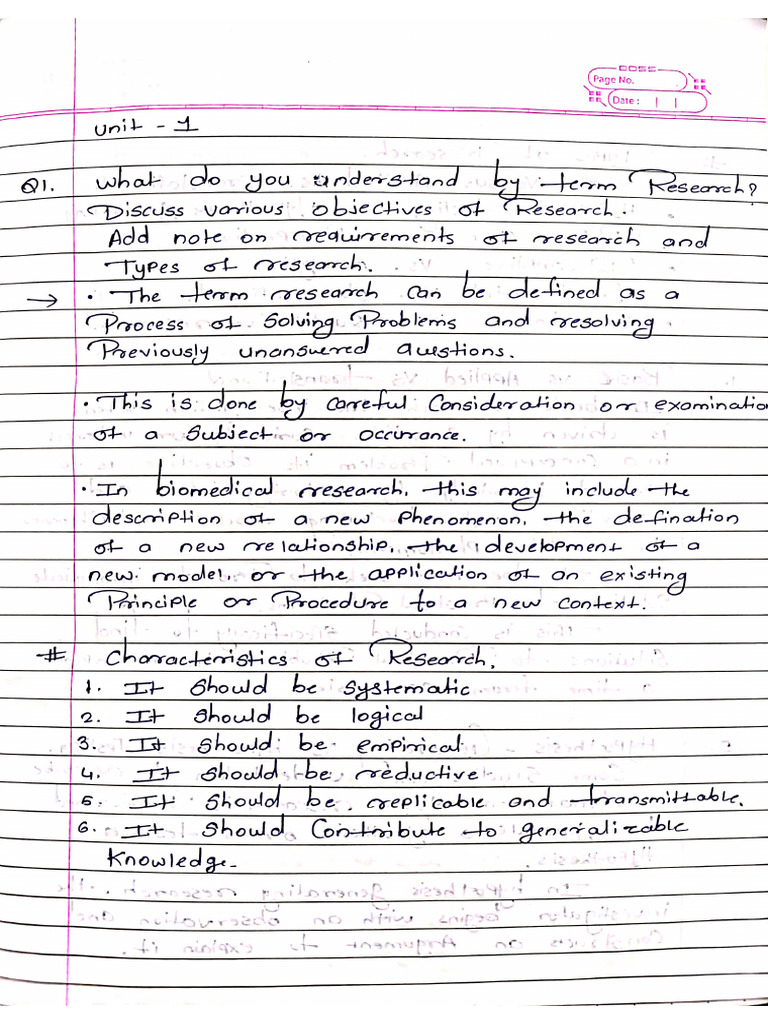 DOSS
Page No.
Date : | |
Unit - 1
Q1. What do you understand by term Research?
Discuss various objectives of Research.
Add note on requirements of research and
Types of research.
→ • The term research can be defined as a
Process of Solving Problems and resolving
Previously unanswered Questions.
• This is done by careful Consideration or examinatio
of a Subject or occurrance.
• In biomedical research, this may include the
description of a new Phenomenon, the defination
of a new relationship, the development of a
new model, or the application of an existing
Principle or Procedure to a new context.
# Characteristics of Research.
1. It should be systematic
2. It should be logical
3. It should be empirical
4. It should be reductive
5. It should be replicable and transmittable.
6. It should Contribute to generalizable
Knowledge.